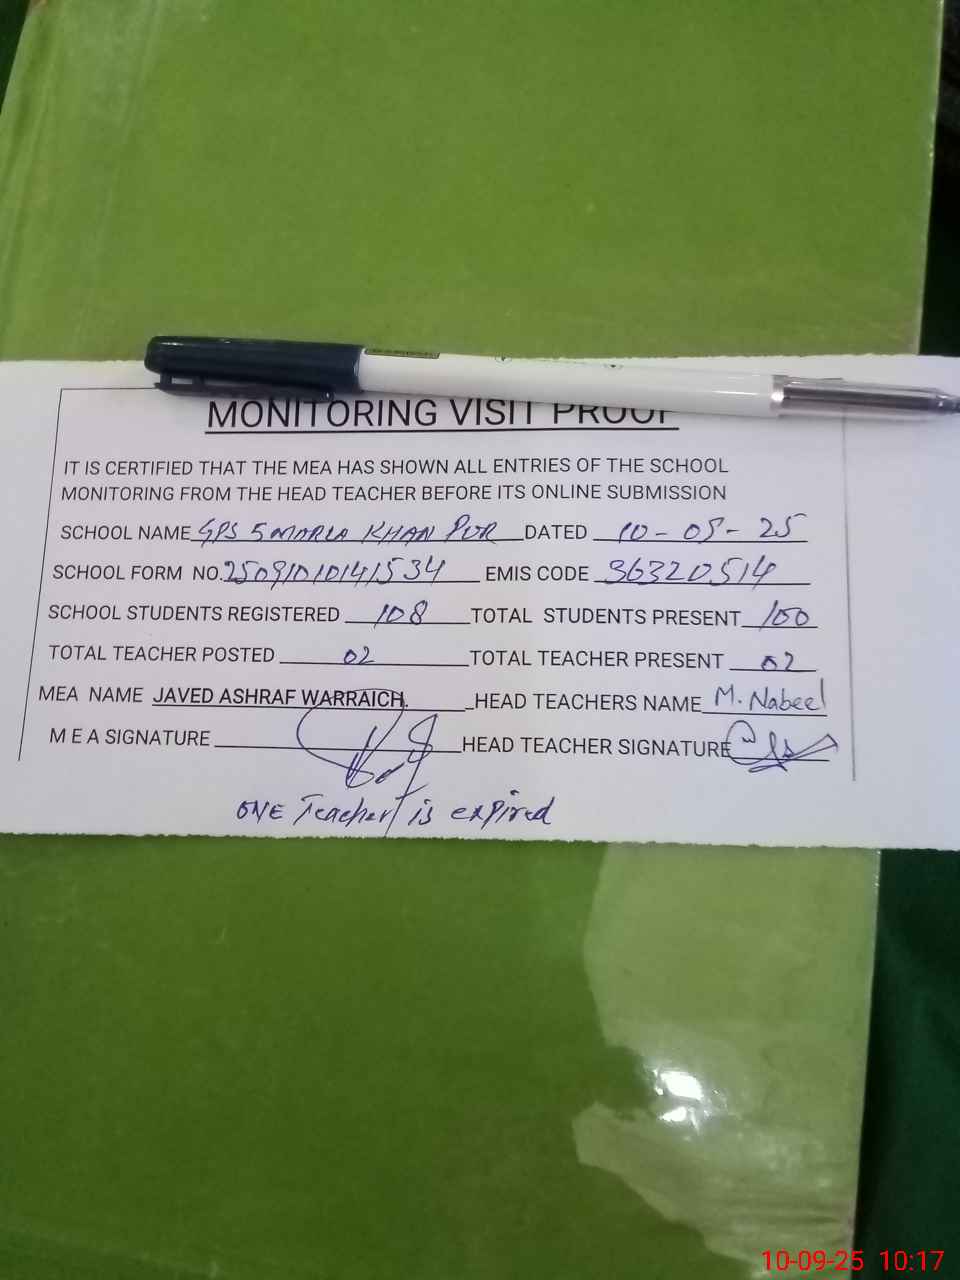 MONITORING VISIT PROOF
IT IS CERTIFIED THAT THE MEA HAS SHOWN ALL ENTRIES OF THE SCHOOL
MONITORING FROM THE HEAD TEACHER BEFORE ITS ONLINE SUBMISSION
SCHOOL NAME GPS 5 MARLA KHAN PUR DATED 10-09-25
SCHOOL FORM NO. 25091010141534 EMIS CODE 36320514
SCHOOL STUDENTS REGISTERED 108 TOTAL STUDENTS PRESENT 100
TOTAL TEACHER POSTED 02 TOTAL TEACHER PRESENT 02
MEA NAME JAVED ASHRAF WARRAICH. HEAD TEACHERS NAME M. Nabeel
M E A SIGNATURE HEAD TEACHER SIGNATURE
ONE Teacher is expired
10-09-25 10:17